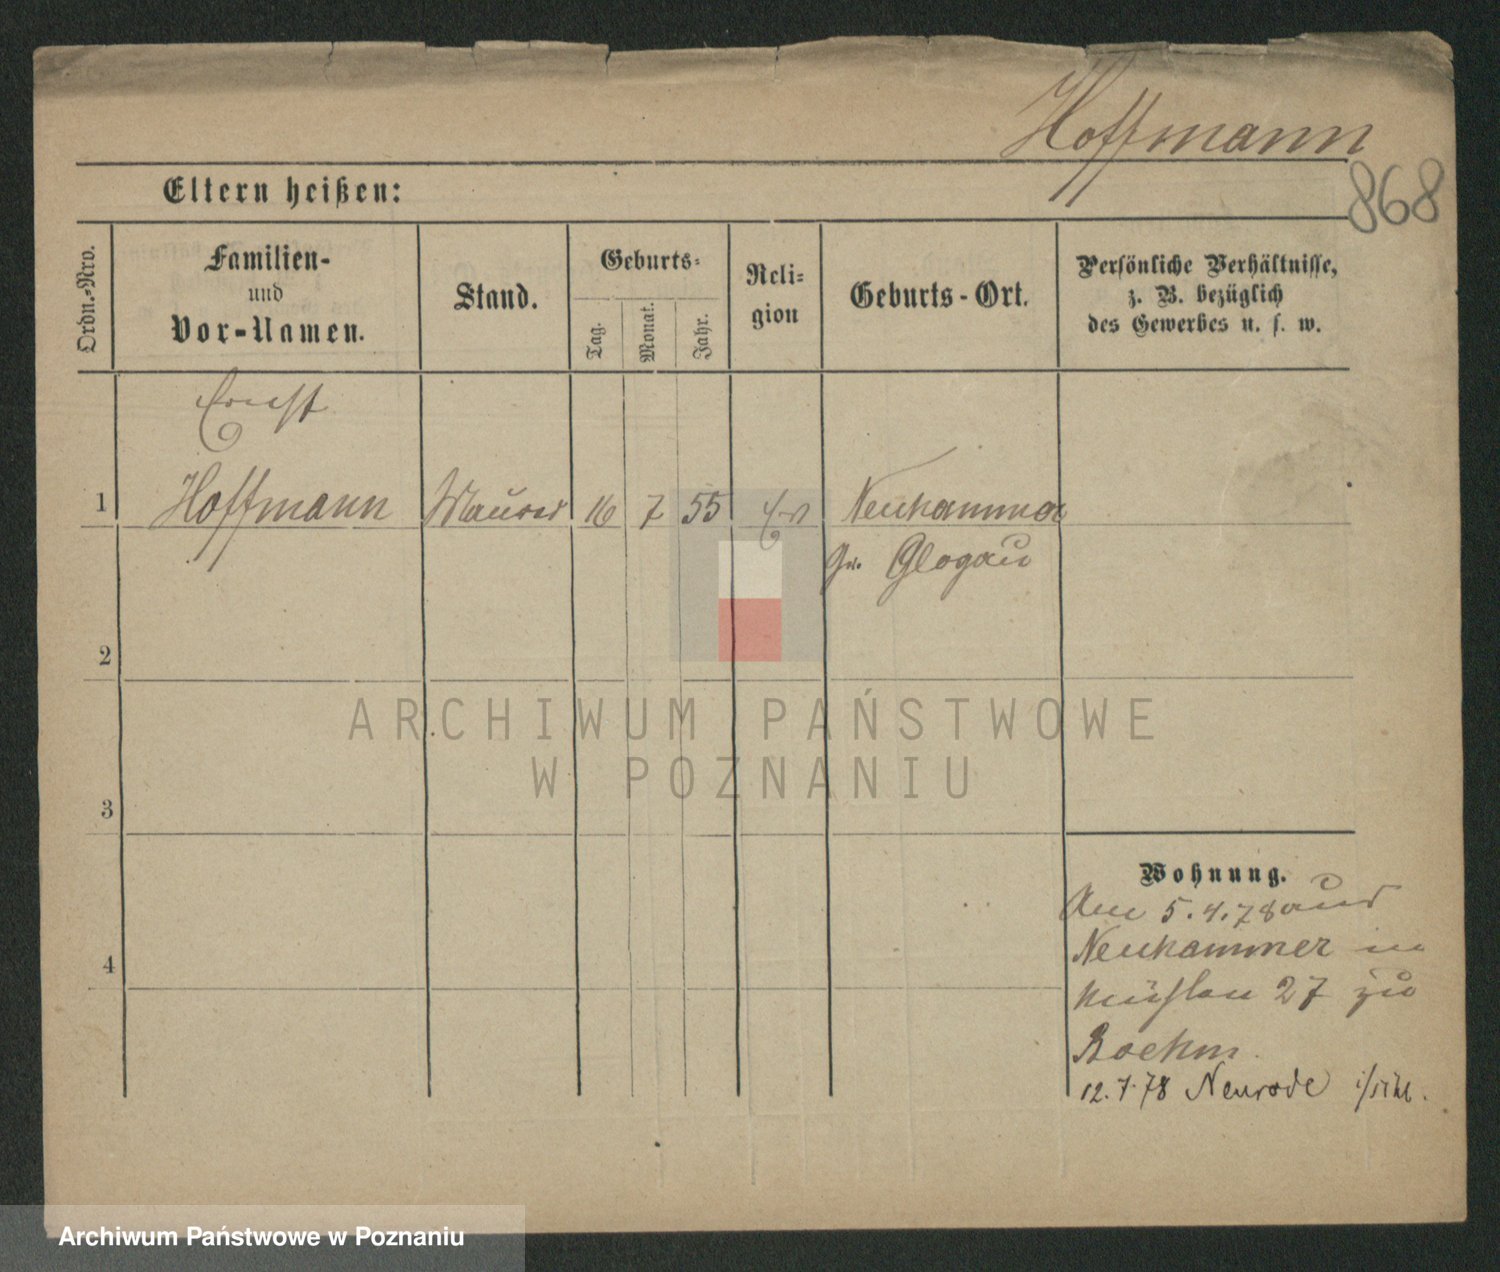 Hoffmann
868
Eltern heißen:
Ordn.-Nro.
Familien-
und
Vor-Namen.
Stand.
Geburts-
Tag.
Monat.
Jahr.
Reli-
gion
Geburts-Ort.
Persönliche Verhältnisse,
z. B. bezüglich
des Gewerbes u. s. w.
Ernst
1 Hoffmann Maurer 16 7 55 Ev Neuhammer
Gr. Glogau
2
3
4
Wohnung.
Am 5.4.78 aus
Neuhammer in
Mühlen 27 zu
Boehm.
12.7.78 Neurode
ARCHIWUM PAŃSTWOWE
W POZNANIU
Archiwum Państwowe w Poznaniu